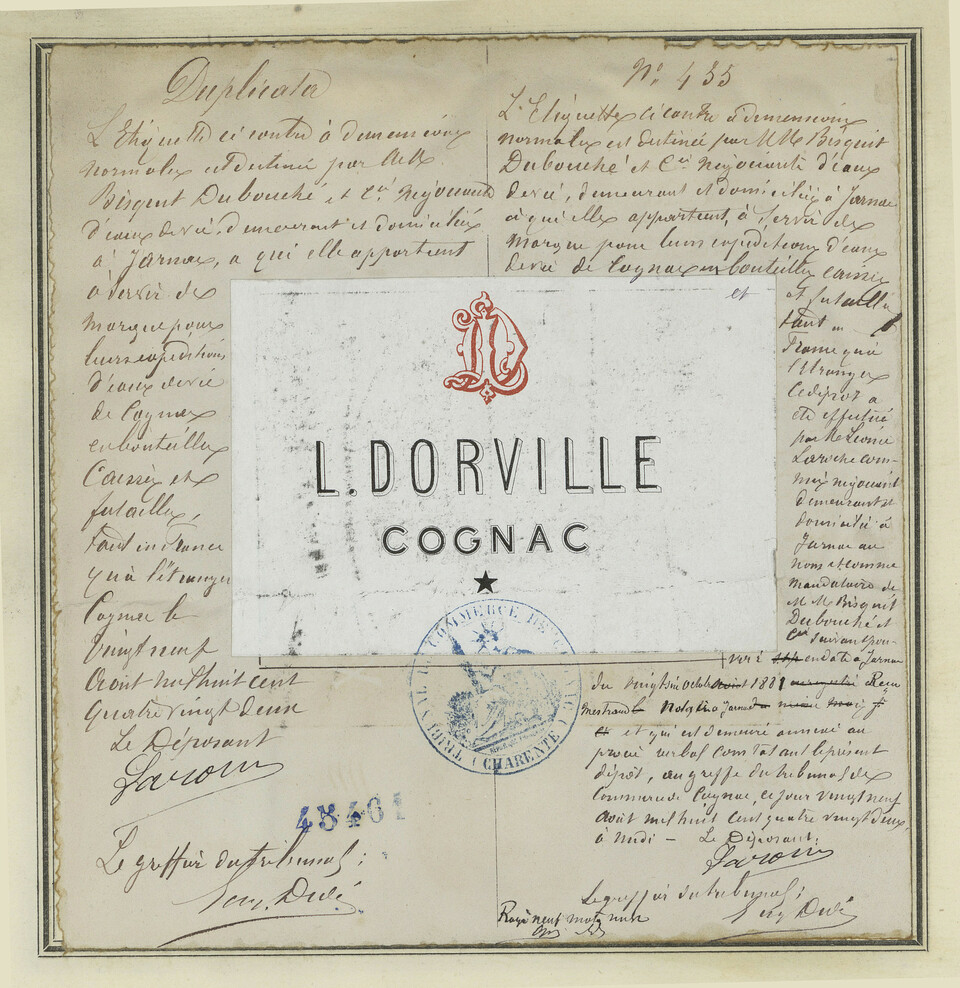 Duplicata
L'Etiquette ci contre à dimensions
normales est destinée par M.M.
Bisquit Dubouché et Cie. Négociants
d'eaux de vie, demeurant et domiciliés
à Jarnac, a qui elle appartient
à servir de
marque pour
leurs expéditions
d'eaux de vie
de Cognac
en bouteilles
Caisses et
futailles,
tant en France
qu'à l'étranger
Cognac le
Vingt neuf
Août mil huit cent
quatre vingt deux
Le Déposant
Laroche
48461
Le greffier du tribunal;
Eug. Didé
N° 433
L'Etiquette ci contre à dimensions
normales est destinée par MM Bisquit
Dubouché et Cie Négociants d'eaux
de vie, demeurant et domiciliés à Jarnac
à qui elle appartient, à servir de
marque pour leurs expéditions d'eaux
de vie de Cognac en bouteilles caisses
et
et futailles
tant en
France qu'à
l'étranger
Le dépôt a
été effectué
par M. Léonce
Laroche com-
mis négociant
demeurant et
domicilié à
Jarnac au
nom et comme
mandataire de
M M Bisquit
Dubouché et
Cie suivant pou-
voir en date à Jarnac
du vingt six octobre 1881
notaire à Jarnac
et qui est demeuré annexé au
procès verbal constatant le présent
dépôt, au greffe du tribunal de
Commerce de Cognac, ce jour vingt neuf
Août mil huit cent quatre vingt deux,
à midi — Le Déposant;
Laroche
Le greffier du tribunal;
Eug Didé
Rayé neuf mots nuls
LD
L. DORVILLE
COGNAC
TRIBUNAL DE COMMERCE DE COGNAC
(CHARENTE)